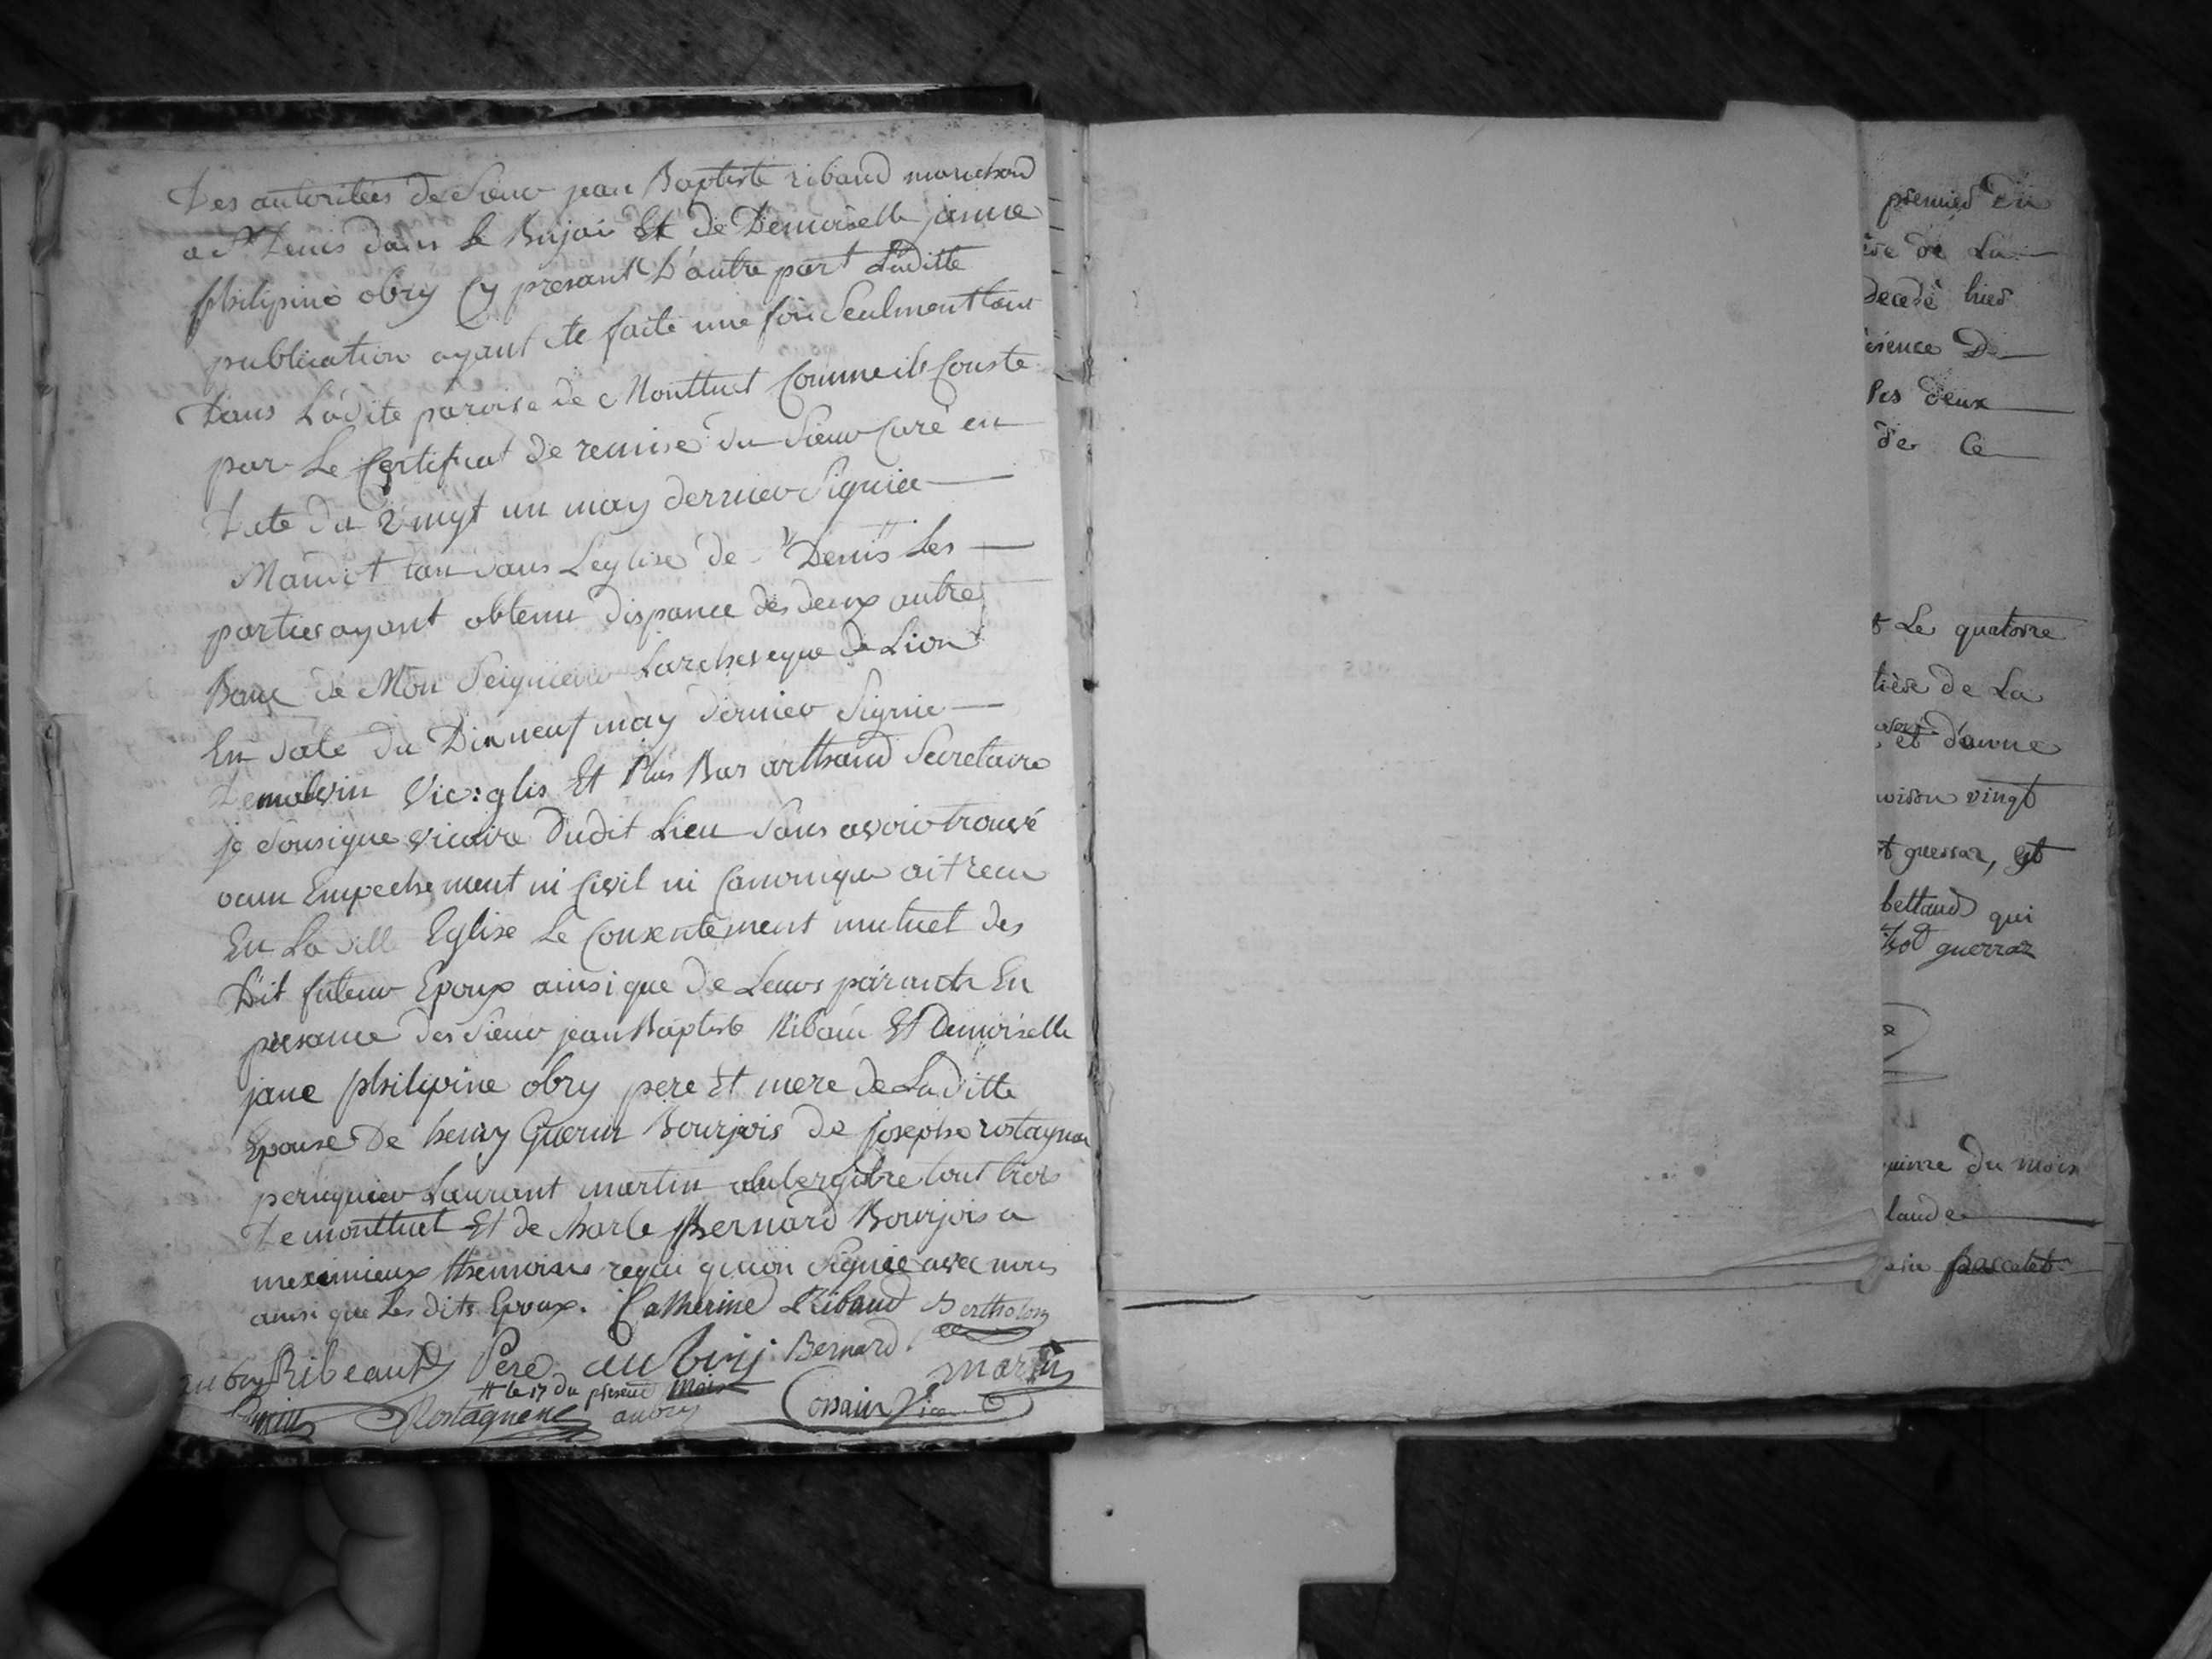 Des autoritées de Sieur jean Baptiste ribaud marchand
a St Denis dans le Bujai Et de Demoiselle janne
philipine obry Cy presant D'autre part Laditte
publication ayant ete faite une fois Seulment tant
Dans Ladite paroise de Montluel Comme ils Conste
par Le Certificat de remise du Sieur Curé en
Date du vingt un may dernier Signiée
Maudit tant dans L'eglise de St Denis Les
parties ayant obtenu dispance des deux autre
Banc de Mon Seignieur Larcheveque de Lion
En date du Dixneuf may dernier Signie
Demalvin Vic: glis Et Plus Bas arthaud Secretaire
je Sousigne vicaire Dudit Lieu Sans avoir trouvé
ocun Empechement ni Civil ni Canonique ait recu
En La ditte Eglise Le Consentement mutuel des
Dit futeur Epoux ainsi que de Leurs parants En
presance des Sieur jean Baptiste Ribau Et Demoiselle
jane philipine obry pere Et mere de Laditte
Epouse De henry Guerin Bourjois de joseph rostagnia
peruquier Laurant martin aubergitre tout trois
De montluel Et de charle Bernard Bourjois a
meximieux themoins requi qui on Signiée avec nous
ainsi que Les dits Epoux. Catherine Ribaud Bertholon
aubry Ribeaut Pere aubry Bernard martin
# le 17 du present mois
Rostagnene aubry Cossain Vic
premier du
ère de La
decedé hier
ésence D
les deux
de Ce
Le quatorze
tière de La
et d'anne
vingt
guerraz, et
bettaud qui
guerraz
du mois
laude
pascalet